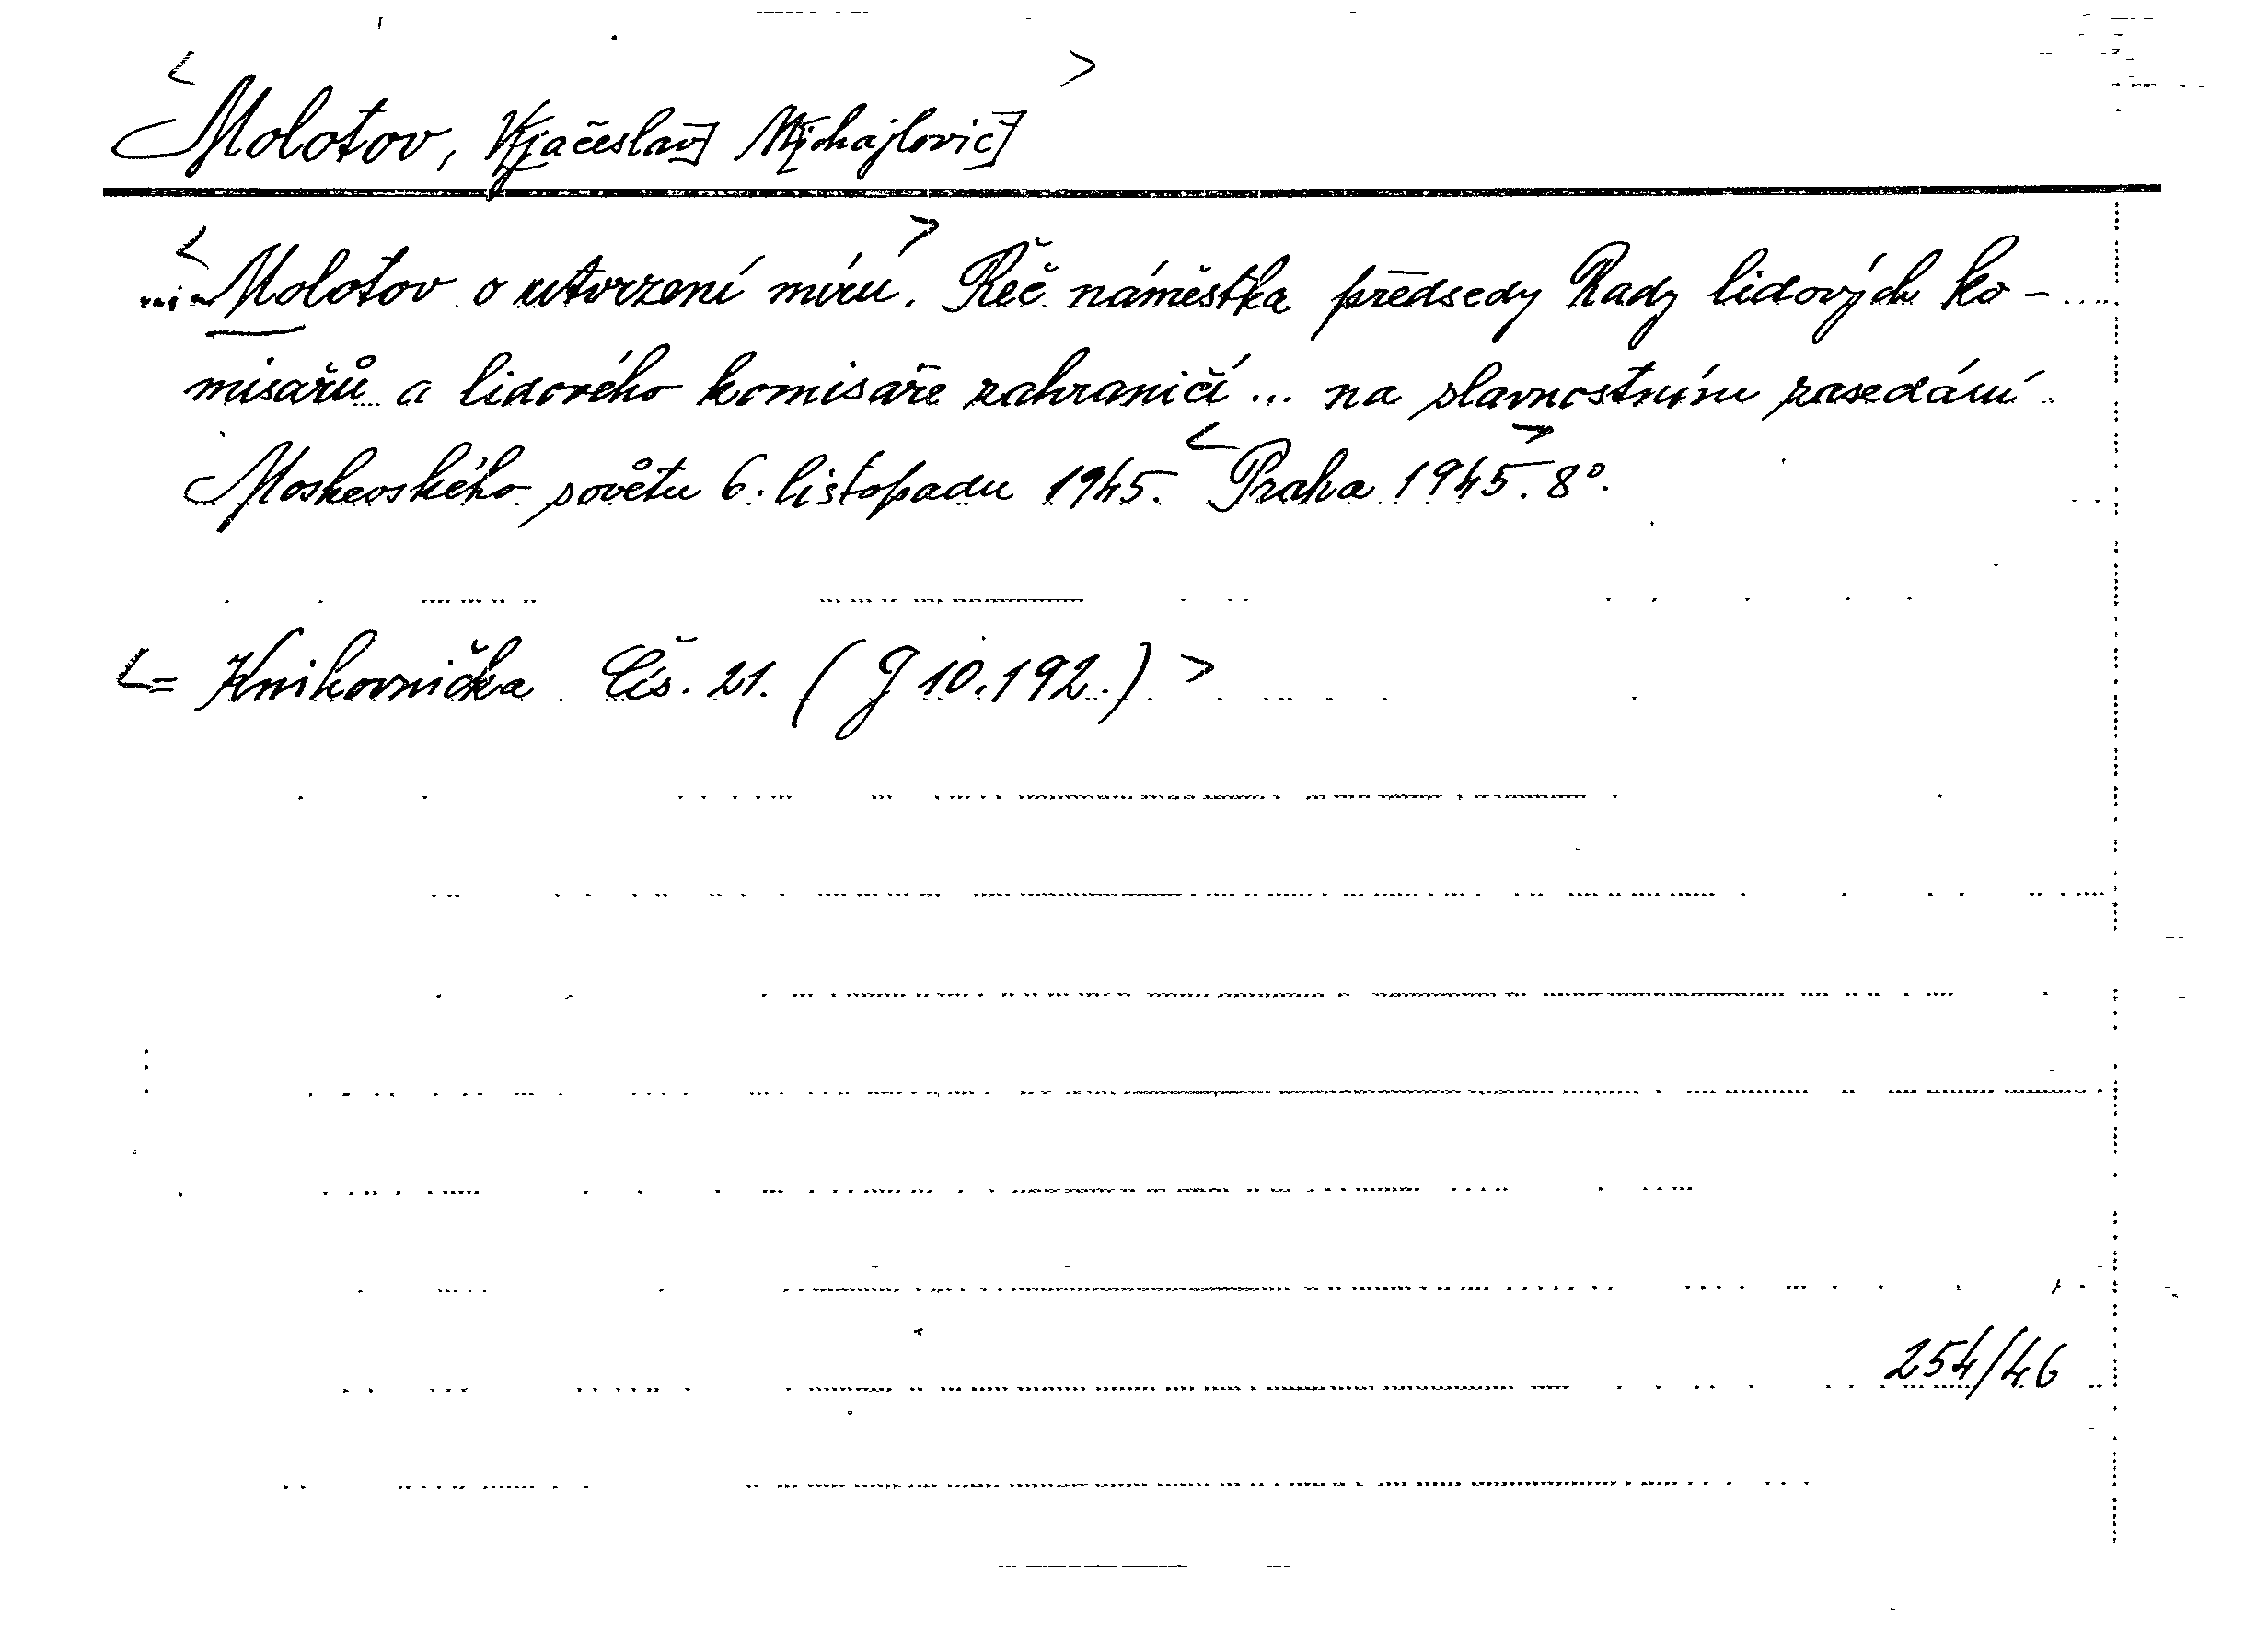 <Molotov, V[jačeslav] M[ichajlovič]>
<Molotov o utvrzení míru.> Řeč náměstka předsedy Rady lidových ko-
misařů a lidového komisaře zahraničí ... na slavnostním zasedání
Moskevského sovětu 6. listopadu 1945. <Praha 1945.> 8°.
<= Knihovnička Čís. 21. (J 10.192.)>
254/46